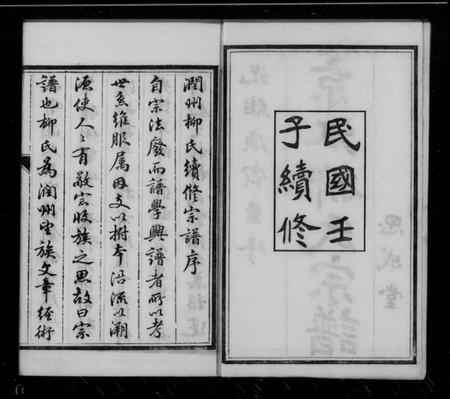 民國壬
子續修
思成堂
潤州柳氏續修宗譜序
自宗法廢而譜學興譜者所以考
世系維服属因支以樹本沿流以溯
源使人人有敬宗收族之思故曰宗
譜也柳氏為潤州望族文章經術